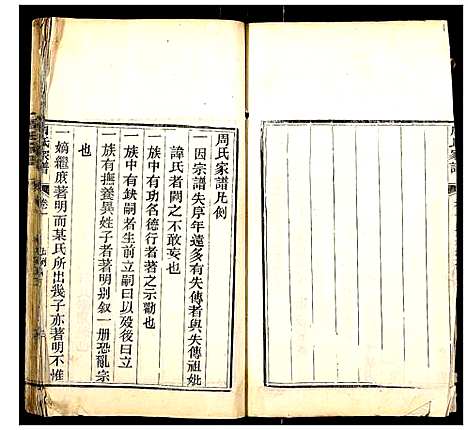 周氏家譜凡例
一因宗譜失序年遠多有失傳者與失傳祖妣
諱氏者闕之不敢妄也
一族中有功名德行者著之示勸也
一族有缺嗣者生前立嗣曰以歿後曰立
一族有撫養異姓子者著明别叙一册恐亂宗
也
一嫡繼庶著明而某氏所出幾子亦著明不惟
周氏家譜
卷一